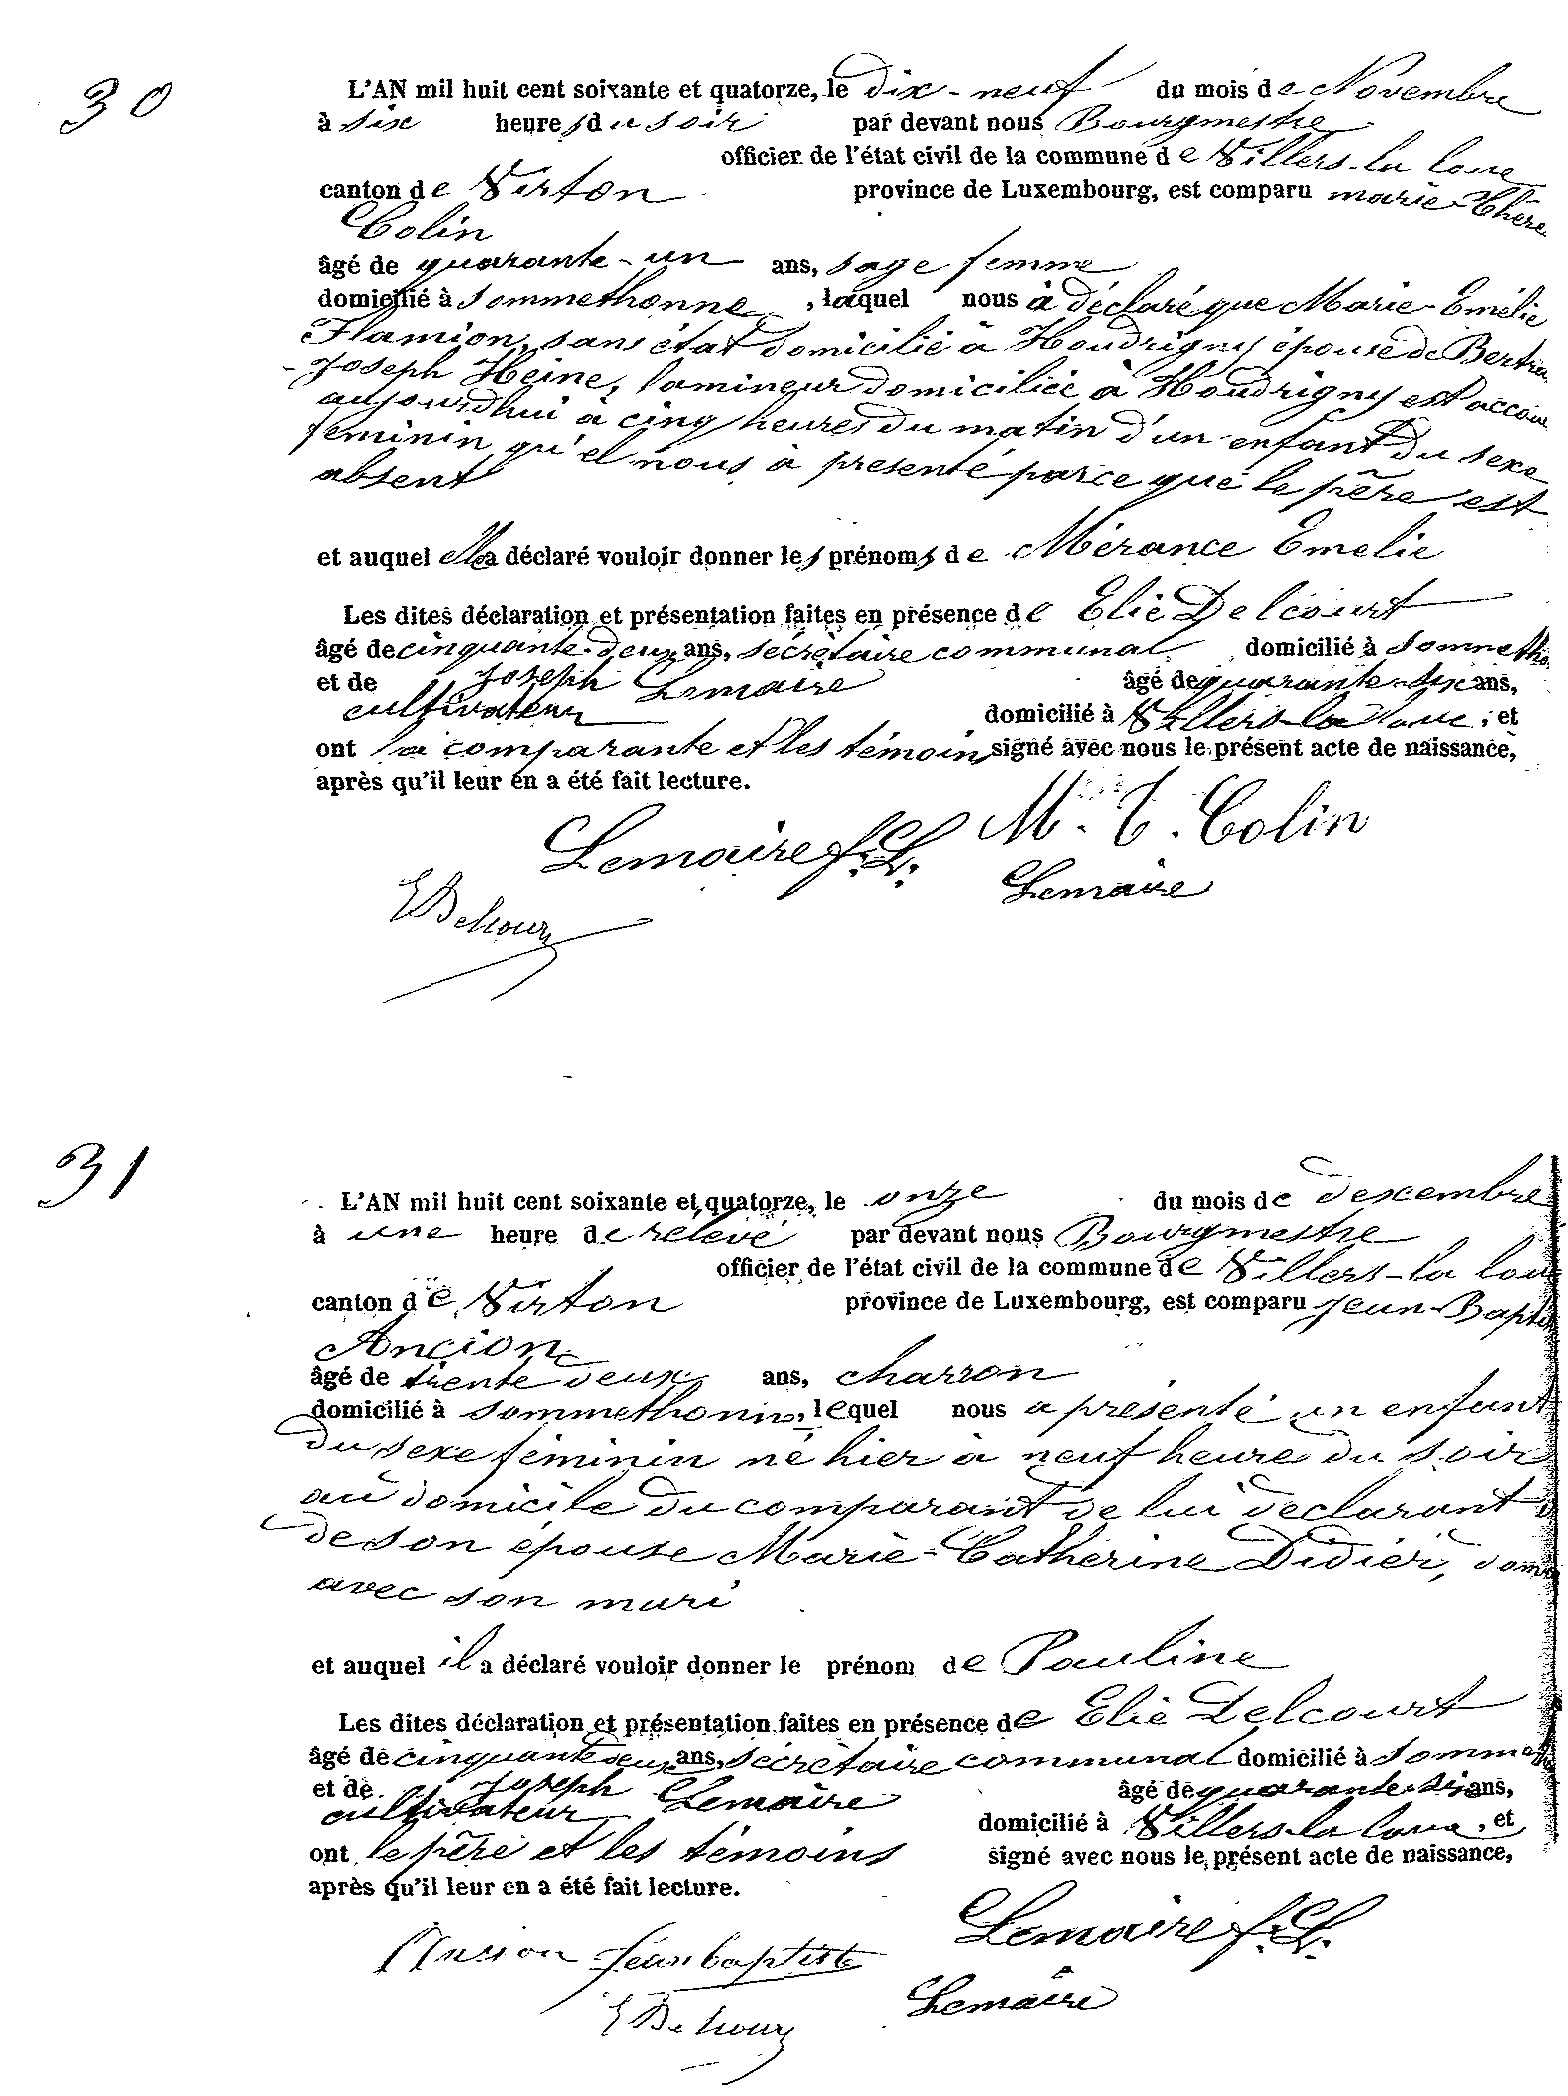 30
L'AN mil huit cent soixante et quatorze, le dix-neuf du mois de Novembre
à six heures du soir par devant nous Bourgmestre
officier de l'état civil de la commune de Villers-la loue
canton de Virton province de Luxembourg, est comparu marie-Thère
Colin
âgé de quarante-un ans, sage femme
domicilié à Sommethonne, laquel nous à déclaré que Marie-Emélie
Flamion, sans état domicilié à Houdrigny épouse de Bertra
Joseph Heine, lamineur domiciliée à Houdrigny est accou
aujourdhui à cinq heures du matin d'un enfant du sexe
feminin qu'el nous à presenté parce que le père est
absent
et auquel elle a déclaré vouloir donner les prénoms de Mérance Emelie
Les dites déclaration et présentation faites en présence de Elie Delcourt
âgé de cinquante-deux ans, sécrètaire communal domicilié à Sommetho
et de Joseph Lemaire âgé de quarante-six ans,
cultivateur domicilié à Villers-la loue, et
ont la comparante et les témoins signé avec nous le présent acte de naissance,
après qu'il leur en a été fait lecture.
Lemaire f.L. M. T. Colin
EDelcour Lemaire
31
L'AN mil huit cent soixante et quatorze, le onze du mois de descembre
à une heure de relevé par devant nous Bourgmestre
officier de l'état civil de la commune de Villers-la lou
canton de Virton province de Luxembourg, est comparu Jean-Baptis
Ancion
âgé de trente deux ans, charron
domicilié à Sommethonn, lequel nous a présenté un enfant
du sexe féminin né hier à neuf heure du soir
au domicile du comparant de lui déclarant
de son épouse Marie-Catherine Didier, domi
avec son mari
et auquel il a déclaré vouloir donner le prénom de Pauline
Les dites déclaration et présentation faites en présence de Elie Delcourt
âgé de cinquante deux ans, sécrètaire communal domicilié à Sommet
et de Joseph Lemaire âgé de quarante-six ans,
cultivateur domicilié à Villers-la loue, et
ont le père et les témoins signé avec nous le présent acte de naissance,
après qu'il leur en a été fait lecture.
Lemaire f.L.
Ansion Jean baptiste
Lemaire
EDelcour